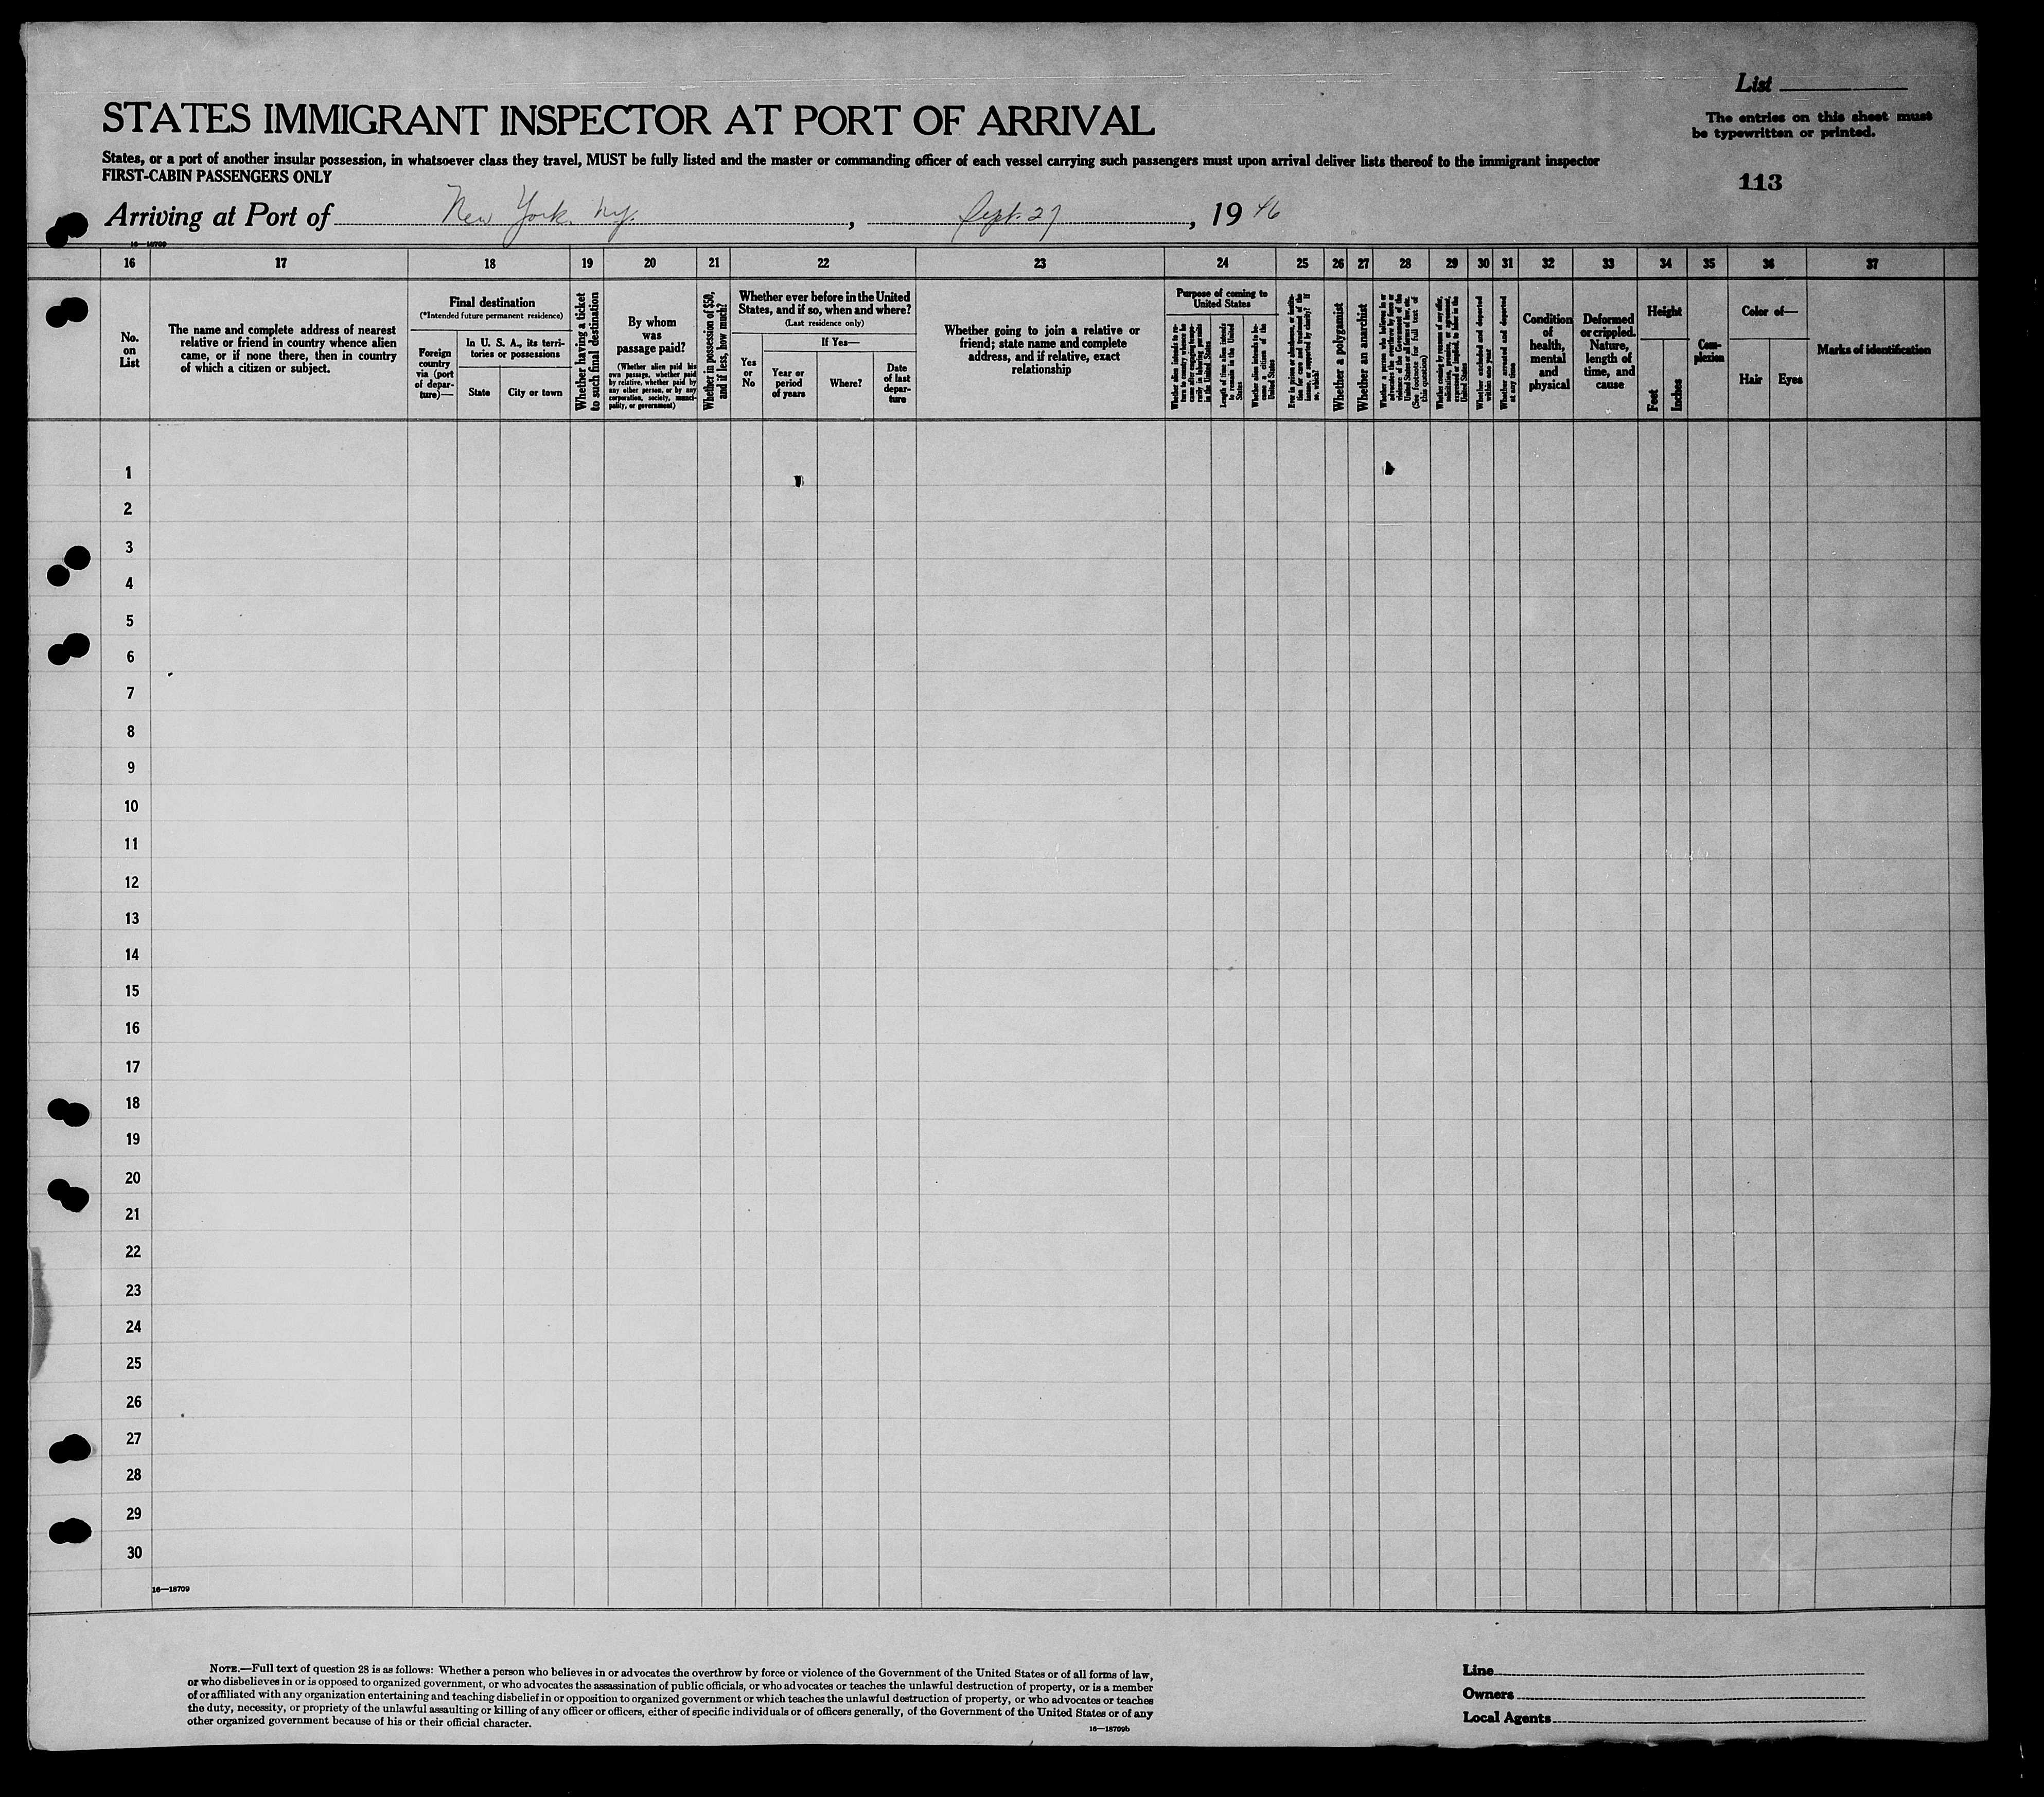 List
The entries on this sheet must
be typewritten or printed.
STATES IMMIGRANT INSPECTOR AT PORT OF ARRIVAL
States, or a port of another insular possession, in whatsoever class they travel, MUST be fully listed and the master or commanding officer of each vessel carrying such passengers must upon arrival deliver lists thereof to the immigrant inspector
FIRST-CABIN PASSENGERS ONLY
113
Arriving at Port of New York. Ny. , Sept. 27 , 19 46
16—18709
16 17 18 19 20 21 22 23 24 25 26 27 28 29 30 31 32 33 34 35 36 37
No.
on
List
The name and complete address of nearest
relative or friend in country whence alien
came, or if none there, then in country
of which a citizen or subject.
Final destination
(*Intended future permanent residence)
Foreign
country
via (port
of depar-
ture)—
In U. S. A., its terri-
tories or possessions
State
City or town
Whether having a ticket
to such final destination
By whom
was
passage paid?
(Whether alien paid his
own passage, whether paid
by relative, whether paid by
any other person, or by any
corporation, society, munici-
pality, or government)
Whether in possession of $50,
and if less, how much?
Whether ever before in the United
States, and if so, when and where?
(Last residence only)
Yes
or
No
If Yes—
Year or
period
of years
Where?
Date
of last
depar-
ture
Whether going to join a relative or
friend; state name and complete
address, and if relative, exact
relationship
Purpose of coming to
United States
Length of time alien intends
to remain in the United
States
Whether alien intends to be-
come a citizen of the
United States
Whether a polygamist
Whether an anarchist
Whether excluded and deported
within one year
Whether arrested and deported
at any time
Condition
of
health,
mental
and
physical
Deformed
or crippled.
Nature,
length of
time, and
cause
Height
Feet
Inches
Com-
plexion
Color of—
Hair
Eyes
Marks of identification
1
2
3
4
5
6
7
8
9
10
11
12
13
14
15
16
17
18
19
20
21
22
23
24
25
26
27
28
29
30
16—18709
NOTE.—Full text of question 28 is as follows: Whether a person who believes in or advocates the overthrow by force or violence of the Government of the United States or of all forms of law,
or who disbelieves in or is opposed to organized government, or who advocates the assassination of public officials, or who advocates or teaches the unlawful destruction of property, or is a member
of or affiliated with any organization entertaining and teaching disbelief in or opposition to organized government or which teaches the unlawful destruction of property, or who advocates or teaches
the duty, necessity, or propriety of the unlawful assaulting or killing of any officer or officers, either of specific individuals or of officers generally, of the Government of the United States or of any
other organized government because of his or their official character.
16—18709b
Line
Owners
Local Agents